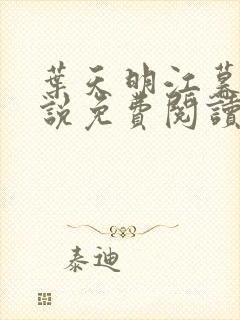 葉天明江暮
說免費閱讀
泰迪